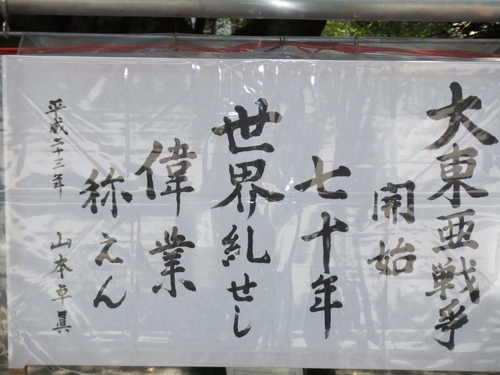 大東亜戦争
開始
七十年
世界糺せし
偉業
称えん
平成二十三年 山本卓眞